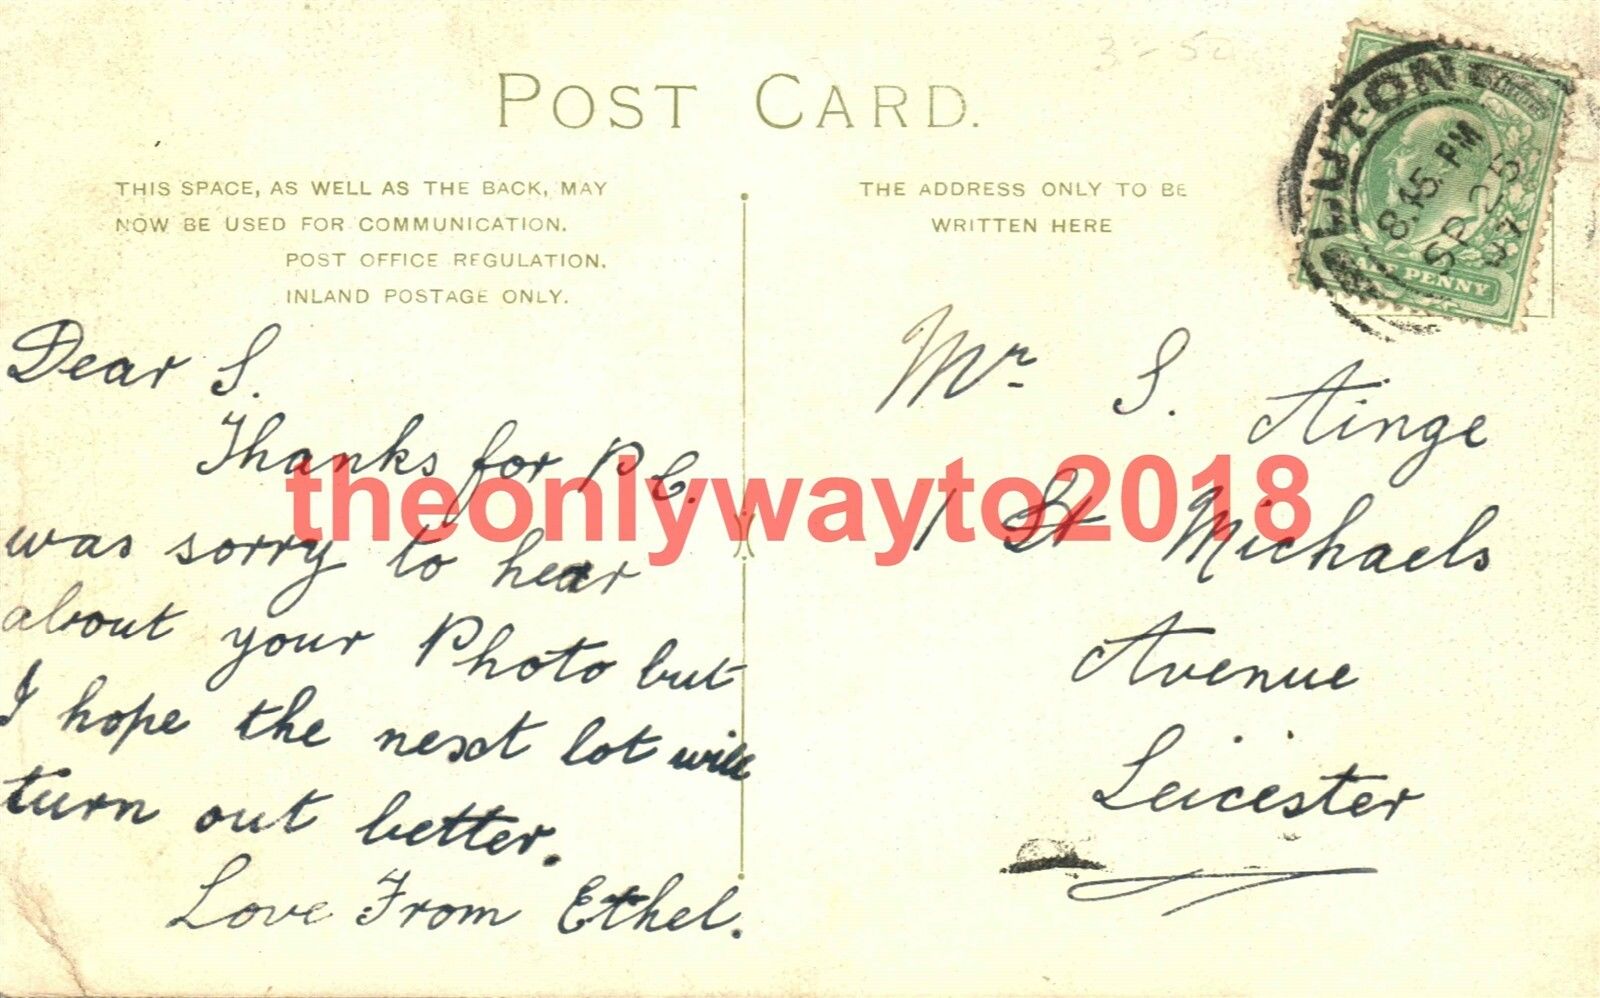 3-50
POST CARD.
THIS SPACE, AS WELL AS THE BACK, MAY
NOW BE USED FOR COMMUNICATION.
POST OFFICE REGULATION.
INLAND POSTAGE ONLY.
THE ADDRESS ONLY TO BE
WRITTEN HERE
LUTON
8.15 PM
SP 25
07
HALF PENNY
Dear S.
Thanks for P.C.
was sorry to hear
about your Photo but
I hope the next lot will
turn out better.
Love From Ethel.
Mr S. Ainge
1 St Michaels
Avenue
Leicester
theonlywayto2018